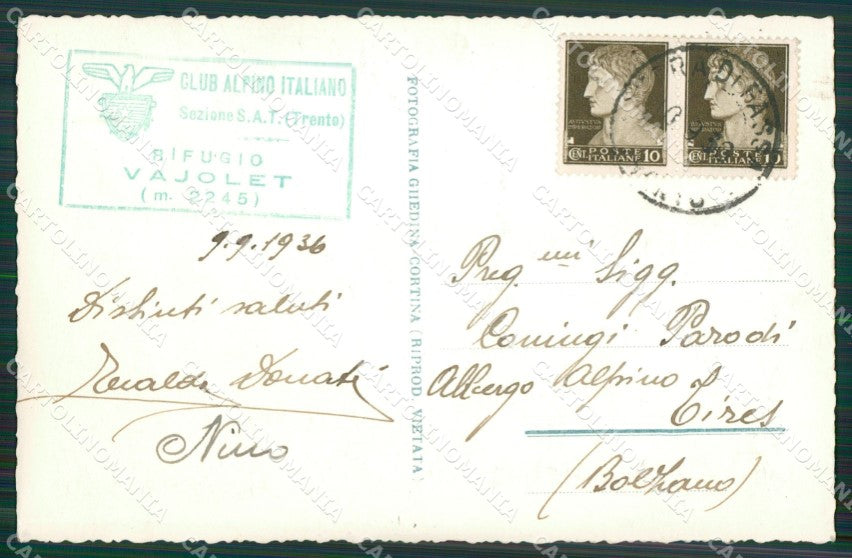 CLUB ALPINO ITALIANO
Sezione S.A.T. (Trento)
RIFUGIO
VAJOLET
(m. 2245)
9.9.1936
Distinti saluti
Donati
Nino
FOTOGRAFIA GHEDINA CORTINA (RIPROD. VIETATA)
AVGVSTVS
POSTE
CENT ITALIANE 10
POSTE
CENT ITALIANE 10
DI FASSA
Preg.mi Sigg.
Coniugi Parodi
Albergo Alpino
Tires
(Bolzano)
CARTOLINOMANIA